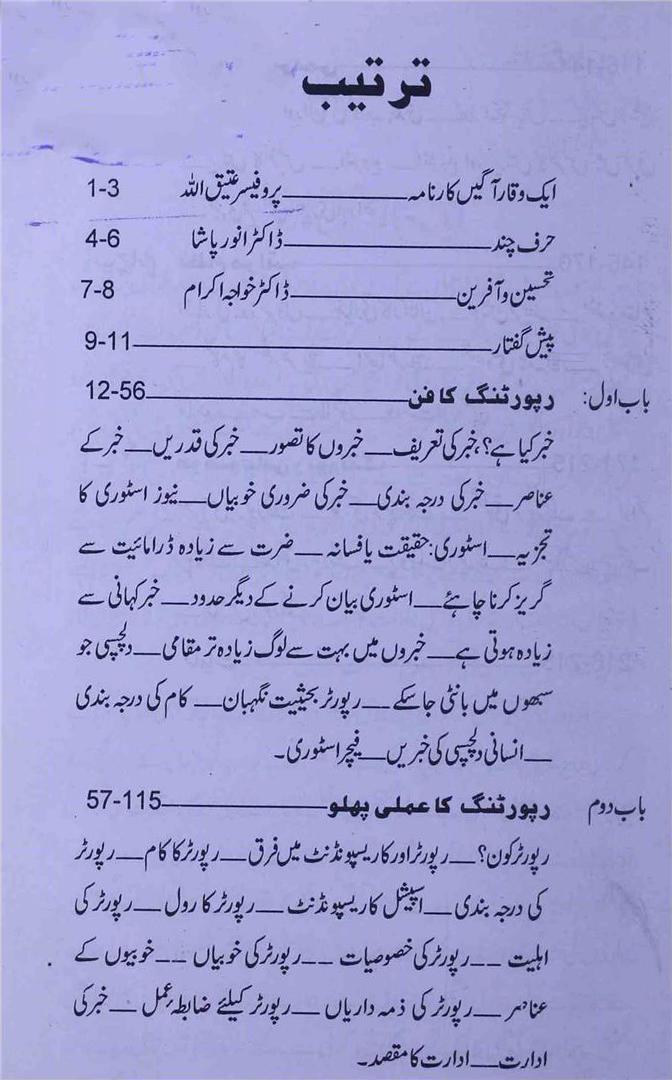 ترتیب
ایک وقار آگیں کارنامہ ــــــــــ پروفیسر عتیق اللہ 1-3
حرف چند ــــــــــ ڈاکٹر انور پاشا 4-6
تحسین و آفرین ــــــــــ ڈاکٹر خواجہ اکرام 7-8
پیش گفتار ــــــــــ 9-11
باب اول: رپورٹنگ کا فن ــــــــــ 12-56
خبر کیا ہے؟ خبر کی تعریف ــ خبروں کا تصور ــ خبر کی قدریں ــ خبر کے
عناصر ــ خبر کی درجہ بندی ــ خبر کی ضروری خوبیاں ــ نیوز اسٹوری کا
تجزیہ ــ اسٹوری: حقیقت یا فسانہ ــ ضرت سے زیادہ ڈرامائیت سے
گریز کرنا چاہئے ــ اسٹوری بیان کرنے کے دیگر حدود ــ خبر کہانی سے
زیادہ ہوتی ہے ــ خبروں میں بہت سے لوگ زیادہ تر مقامی ــ دلچسپی جو
سبھوں میں بانٹی جا سکے ــ رپورٹر بحثیت نگہبان ــ کام کی درجہ بندی
ــ انسانی دلچسپی کی خبریں ــ فیچر اسٹوری۔
باب دوم رپورٹنگ کا عملی پھلو ــــــــــ 57-115
رپورٹر کون؟ ــ رپورٹر اور کاریسپونڈنٹ میں فرق ــ رپورٹر کا کام ــ رپورٹر
کی درجہ بندی ــ اسپیشل کاریسپونڈنٹ ــ رپورٹر کا رول ــ رپورٹر کی
اہلیت ــ رپورٹر کی خصوصیات ــ رپورٹر کی خوبیاں ــ خوبیوں کے
عناصر ــ رپورٹر کی ذمہ داریاں ــ رپورٹر کیلئے ضابطہ عمل ــ خبر کی
ادارت ــ ادارت کا مقصد۔